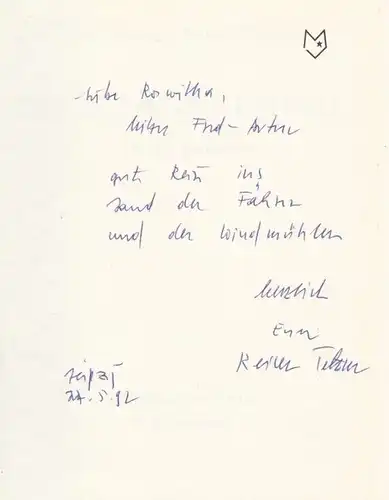 Liebe Roswitha,
lieber Fred-Artur
gute Reise ins
Land der Fähren
und der Windmühlen
herzlich
Euer
Reiner Tetzner
Leipzig
22.5.92